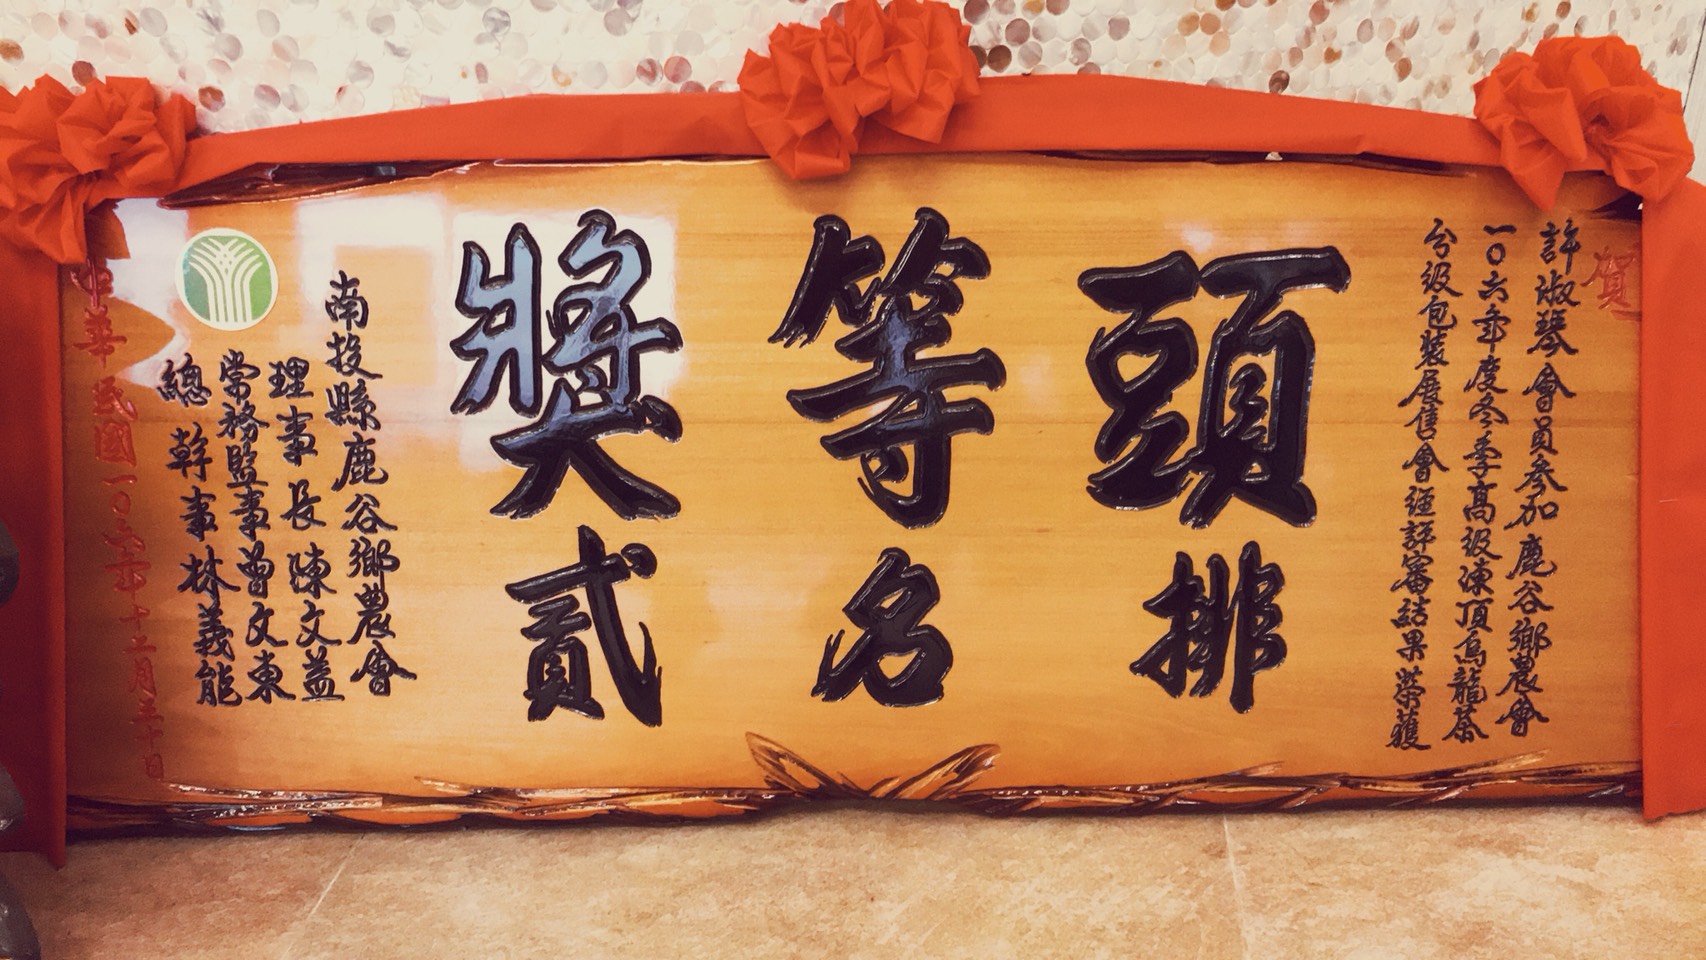 賀
許淑琴會員參加鹿谷鄉農會
一〇六年度冬季高級凍頂烏龍茶
分級包裝展售會經評審結果榮獲
頭等獎
排名貳
南投縣鹿谷鄉農會
理事長陳文益
常務監事曾文東
總幹事林義能
中華民國一〇六年十二月三十日